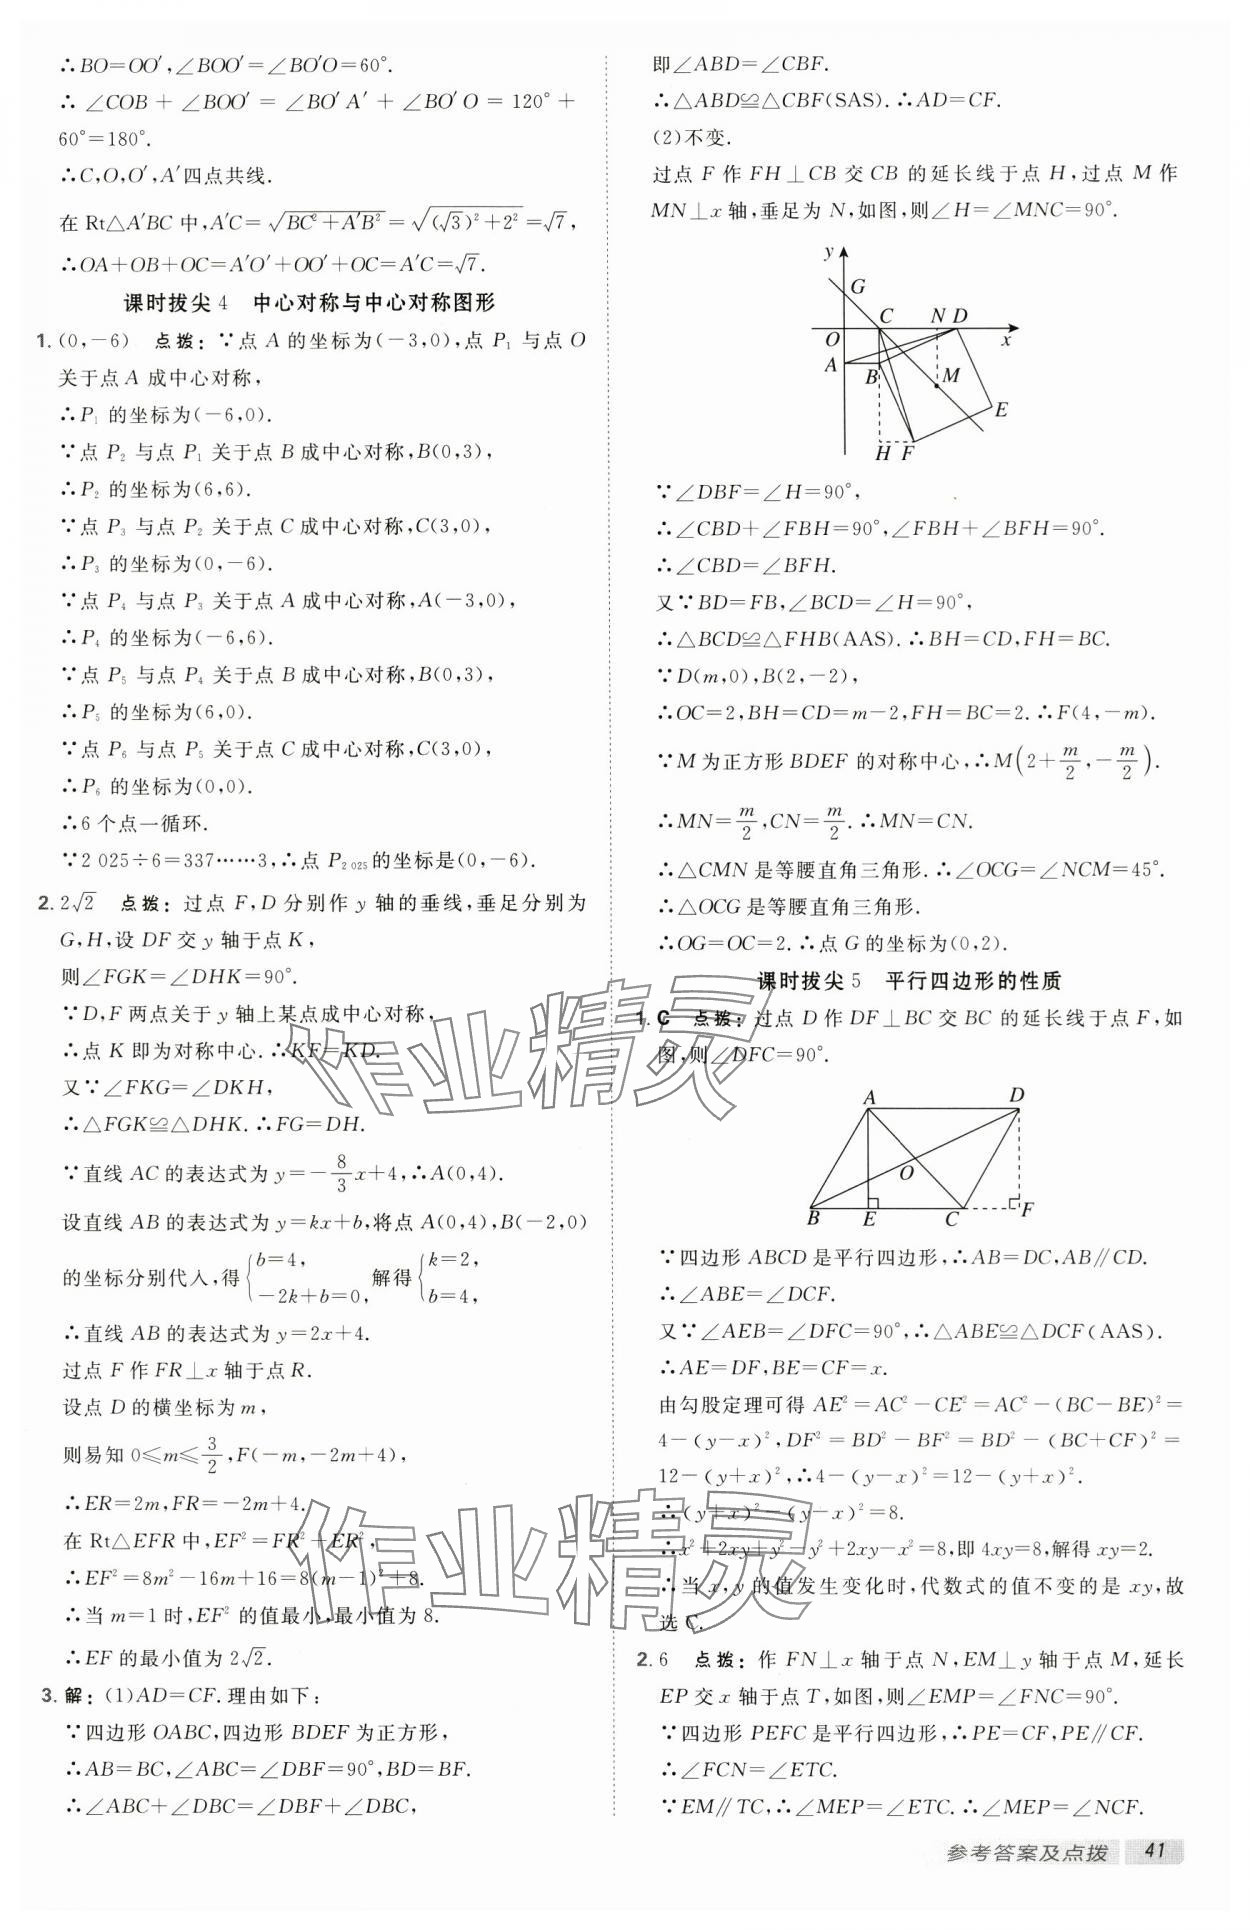 ∴BO=OO′,∠BOO′=∠BO′O=60°.
∴ ∠COB + ∠BOO′ = ∠BO′A′ + ∠BO′O = 120° +
60°=180°.
∴C,O,O′,A′四点共线.
在 Rt△A′BC 中,A′C=√(BC²+A′B²)=√((√3)²+2²)=√7,
∴OA+OB+OC=A′O′+OO′+OC=A′C=√7.
课时拔尖 4 中心对称与中心对称图形
1.(0,-6) 点拨:∵点 A 的坐标为(-3,0),点 P₁ 与点 O
关于点 A 成中心对称,
∴P₁ 的坐标为(-6,0).
∵点 P₂ 与点 P₁ 关于点 B 成中心对称,B(0,3),
∴P₂ 的坐标为(6,6).
∵点 P₃ 与点 P₂ 关于点 C 成中心对称,C(3,0),
∴P₃ 的坐标为(0,-6).
∵点 P₄ 与点 P₃ 关于点 A 成中心对称,A(-3,0),
∴P₄ 的坐标为(-6,6).
∵点 P₅ 与点 P₄ 关于点 B 成中心对称,B(0,3),
∴P₅ 的坐标为(6,0).
∵点 P₆ 与点 P₅ 关于点 C 成中心对称,C(3,0),
∴P₆ 的坐标为(0,0).
∴6 个点一循环.
∵2 025÷6=337……3,∴点 P₂₀₂₅的坐标是(0,-6).
2.2√2 点拨:过点 F,D 分别作 y 轴的垂线,垂足分别为
G,H,设 DF 交 y 轴于点 K,
则∠FGK=∠DHK=90°.
∵D,F 两点关于 y 轴上某点成中心对称,
∴点 K 即为对称中心.∴KF=KD.
又∵∠FKG=∠DKH,
∴△FGK≌△DHK.∴FG=DH.
∵直线 AC 的表达式为 y=-8/3x+4,∴A(0,4).
设直线 AB 的表达式为 y=kx+b,将点 A(0,4),B(-2,0)
的坐标分别代入,得{b=4, -2k+b=0, 解得{k=2, b=4,
∴直线 AB 的表达式为 y=2x+4.
过点 F 作 FR⊥x 轴于点 R.
设点 D 的横坐标为 m,
则易知 0≤m≤3/2,F(-m,-2m+4),
∴ER=2m,FR=-2m+4.
在 Rt△EFR 中,EF²=FR²+ER²,
∴EF²=8m²-16m+16=8(m-1)²+8.
∴当 m=1 时,EF² 的值最小,最小值为 8.
∴EF 的最小值为 2√2.
3.解:(1)AD=CF.理由如下:
∵四边形 OABC,四边形 BDEF 为正方形,
∴AB=BC,∠ABC=∠DBF=90°,BD=BF.
∴∠ABC+∠DBC=∠DBF+∠DBC,
即∠ABD=∠CBF.
∴△ABD≌△CBF(SAS).∴AD=CF.
(2)不变.
过点 F 作 FH⊥CB 交 CB 的延长线于点 H,过点 M 作
MN⊥x 轴,垂足为 N,如图,则∠H=∠MNC=90°.
y
G
C N D
O x
A
B M
E
H F
∵∠DBF=∠H=90°,
∴∠CBD+∠FBH=90°,∠FBH+∠BFH=90°.
∴∠CBD=∠BFH.
又∵BD=FB,∠BCD=∠H=90°,
∴△BCD≌△FHB(AAS).∴BH=CD,FH=BC.
∵D(m,0),B(2,-2),
∴OC=2,BH=CD=m-2,FH=BC=2.∴F(4,-m).
∵M 为正方形 BDEF 的对称中心,∴M(2+m/2,-m/2).
∴MN=m/2,CN=m/2.∴MN=CN.
∴△CMN 是等腰直角三角形.∴∠OCG=∠NCM=45°.
∴△OCG 是等腰直角三角形.
∴OG=OC=2.∴点 G 的坐标为(0,2).
课时拔尖 5 平行四边形的性质
1.C 点拨:过点 D 作 DF⊥BC 交 BC 的延长线于点 F,如
图,则∠DFC=90°.
A D
O
B E C F
∵四边形 ABCD 是平行四边形,∴AB=DC,AB∥CD.
∴∠ABE=∠DCF.
又∵∠AEB=∠DFC=90°,∴△ABE≌△DCF(AAS).
∴AE=DF,BE=CF=x.
由勾股定理可得 AE²=AC²-CE²=AC²-(BC-BE)²=
4-(y-x)²,DF²=BD²-BF²=BD²-(BC+CF)²=
12-(y+x)²,∴4-(y-x)²=12-(y+x)².
∴(y+x)²-(y-x)²=8.
∴x²+2xy+y²-y²+2xy-x²=8,即 4xy=8,解得 xy=2.
∴当 x,y 的值发生变化时,代数式的值不变的是 xy,故
选 C.
2.6 点拨:作 FN⊥x 轴于点 N,EM⊥y 轴于点 M,延长
EP 交 x 轴于点 T,如图,则∠EMP=∠FNC=90°.
∵四边形 PEFC 是平行四边形,∴PE=CF,PE∥CF.
∴∠FCN=∠ETC.
∵EM∥TC,∴∠MEP=∠ETC.∴∠MEP=∠NCF.
作业精灵
作业精灵
参考答案及点拨 41